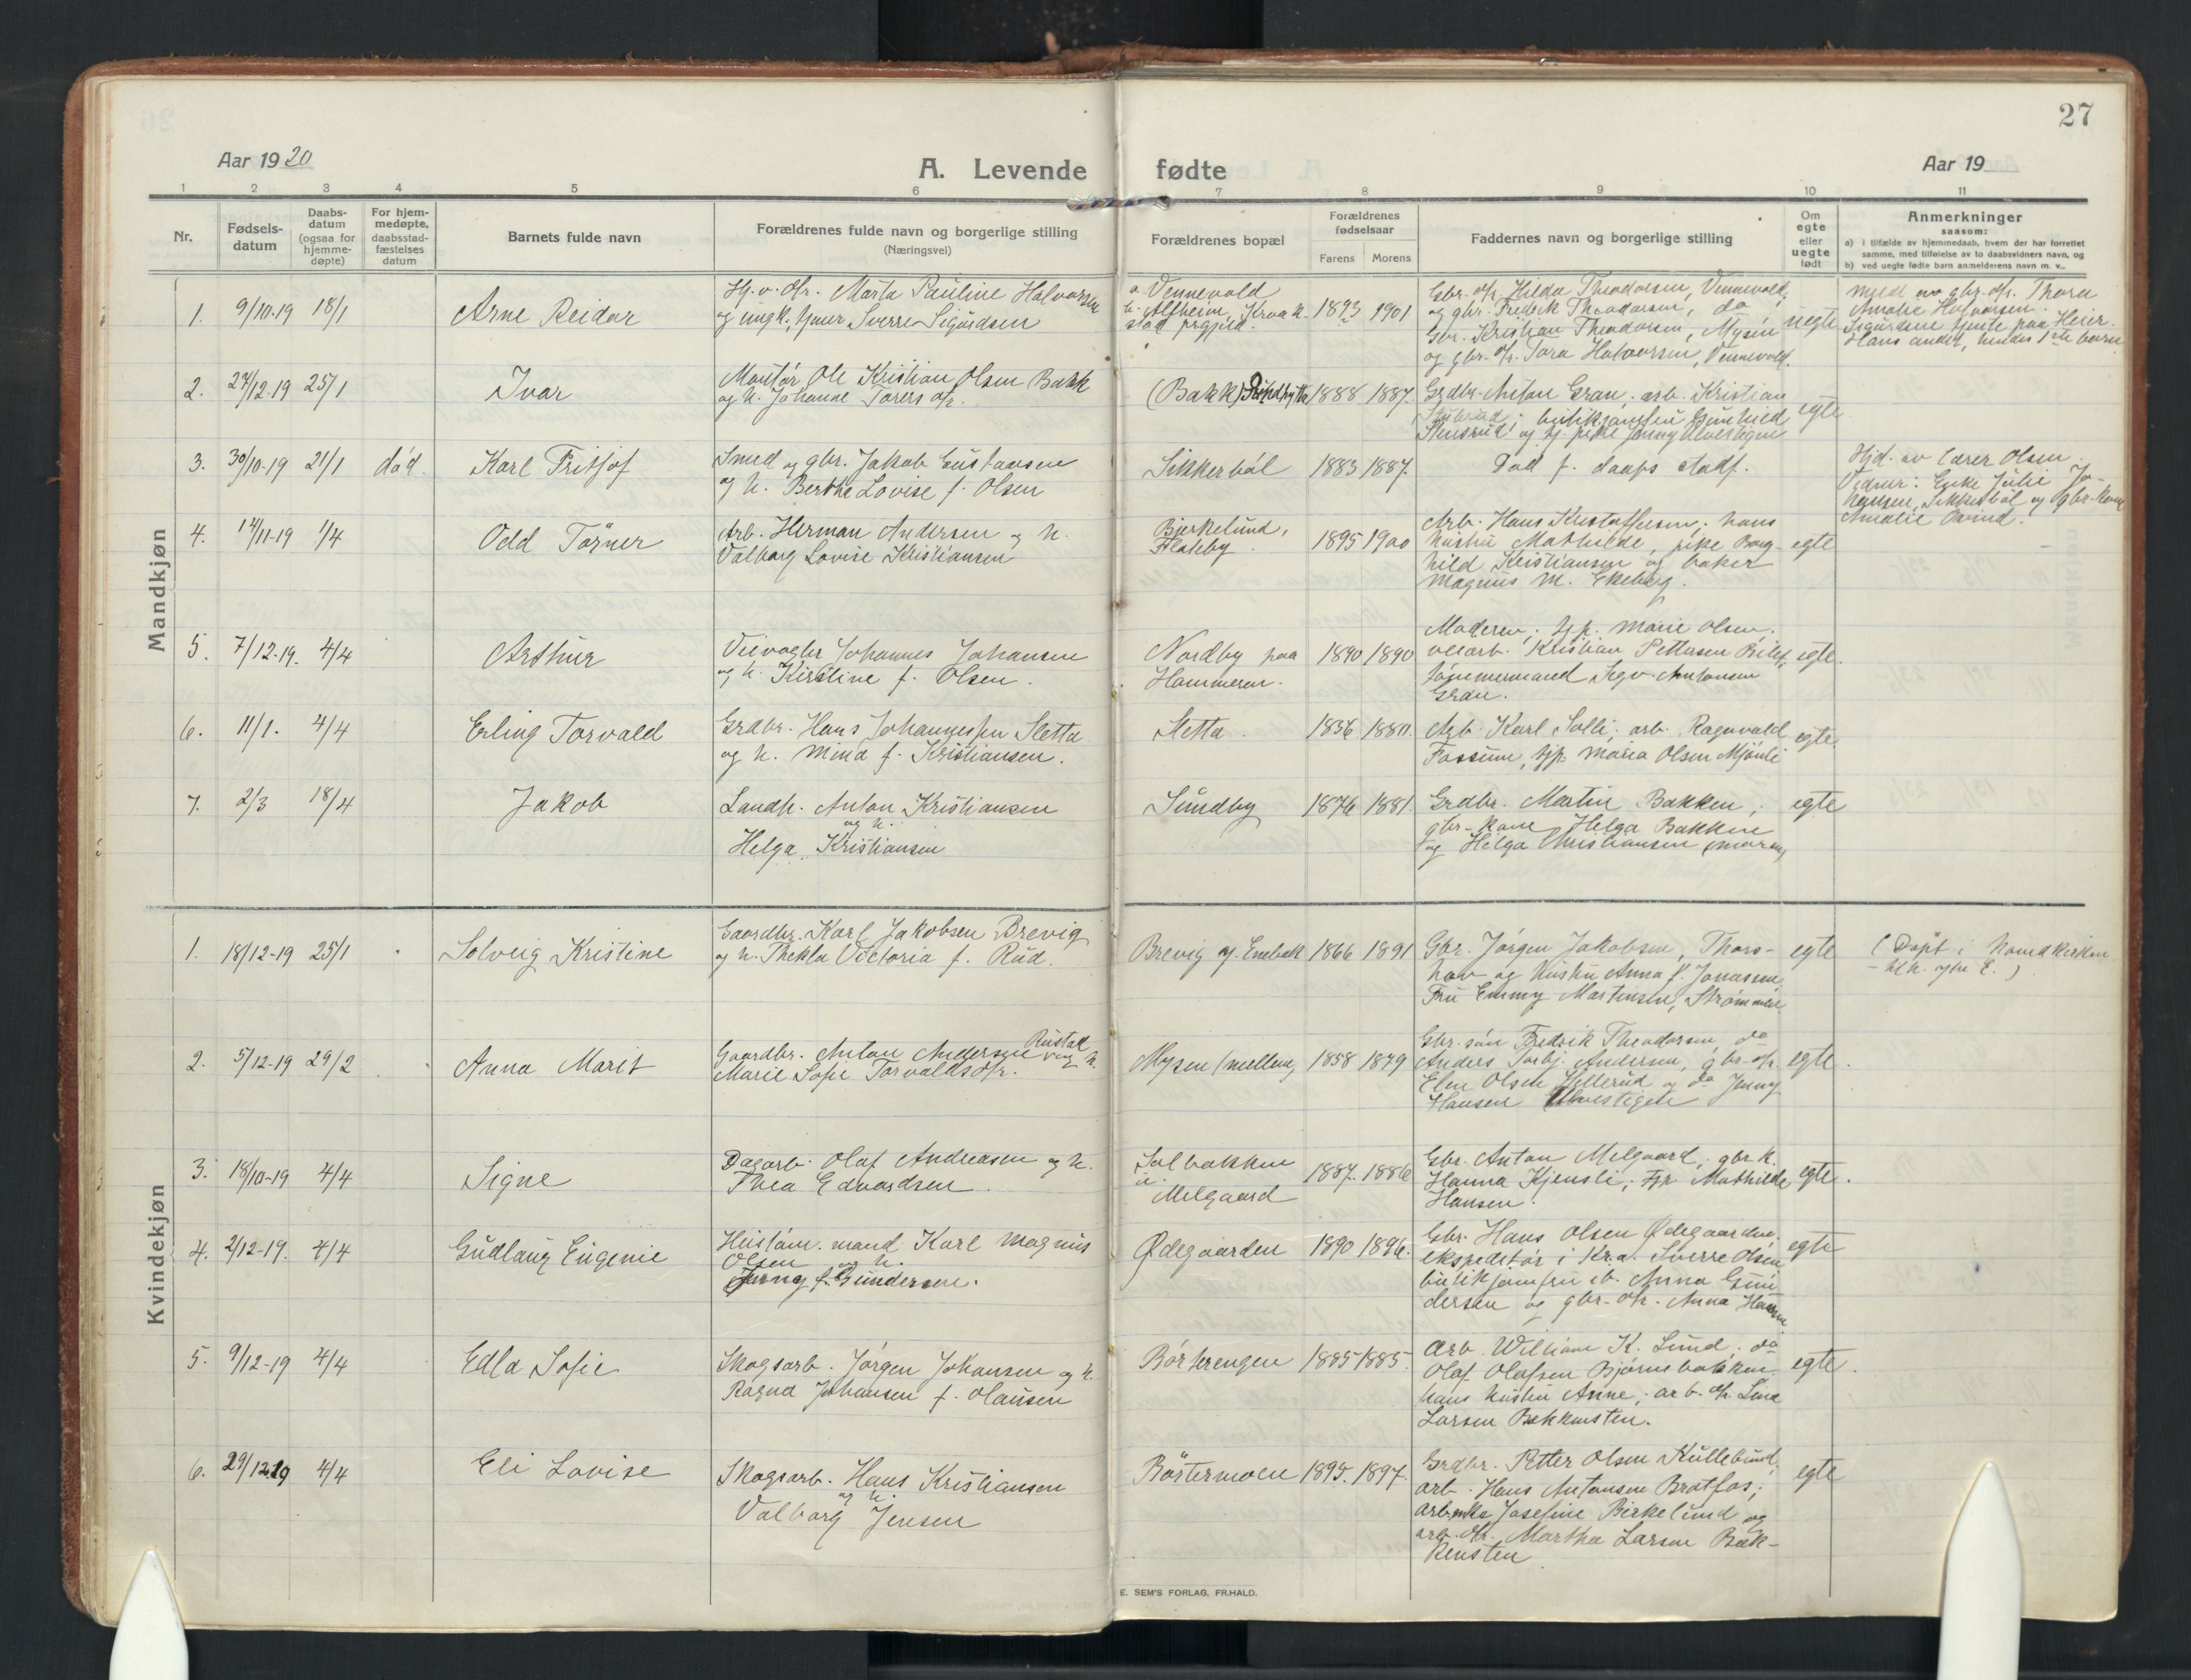 27
Aar 1920
A. Levende fødte
Aar 19
1 2 3 4 5 6 7 8 9 10 11
Nr.
Fødsels-
datum
Daabs-
datum
(ogsaa for
hjemme-
døpte)
For hjem-
medøpte,
daabsstad-
fæstelses
datum
Barnets fulde navn
Forældrenes fulde navn og borgerlige stilling
(Næringsvei)
Forældrenes bopæl
Forældrenes
fødselsaar
Farens Morens
Faddernes navn og borgerlige stilling
Om
egte
eller
uegte
født
Anmerkninger
saasom:
a) i tilfælde av hjemmedaab, hvem der har forrettet
samme, med tilføielse av to daabsvidners navn, og
b) ved uegte fødte barn anmelderens navn m. v..
Mandkjøn
1. 9/10-19 18/1
Arne Reidar
Hj. v. d/r. Marta Pauline Halvorsen
og ungk. Sverre Sigurdsen
a. Vennevold
b. Alfheim, Kraak-
stad prgjeld.
1893 1901
Gbr. d/r Hilda Theodorsen, Vennevold,
og gbr. Fredrik Theodorsen, do;
Gbr. Kristian Theodorsen, Mysen
og gbr. d/r. Tora Halvorsen, Vennevold.
uegte
Meldt av gbr. d/r. Thora
Amalie Halvorsen.
Sigurdsen tjente paa Heier.
Hans andet, hendes 1ste barn
2. 27/12-19 25/1
Ivar
Montør Ole Kristian Olsen Bakk
og h. Johanne Torers d/r.
(Bakk) Sundbytte
1888 1887.
Grdbr. Anton Gran; arb. Kristian
Stubrud; butikjomfru Gunhild
Stubrud; og tj. pike Jenny Ulvestigen
egte
3. 30/10-19 21/1 død.
Karl Fritjof
Smed og gbr. Jakob Gustavsen
og h. Berthe Lovise f. Olsen
Sikkerbøl
1883 1887.
Død f. daaps stadf.
Hjd. av lærer Olsen.
Vidner: Enke Julie Jo-
hansen, Sikkerbøl og gbr-kone
Amalie Øvind.
4. 14/11-19 1/4
Odd Törner
Arb. Herman Andersen og h.
Valborg Lovise Kristiansen
Bjerkelund,
Flateby.
1895 1900
Arb. Hans Kristoffersen; hans
hustru Mathilde, pike Borg-
hild Kristiansen og baker
Magnus M. Ekeberg.
egte
5. 7/12-19. 4/4
Arthur
Veivogter Johannes Johansen
og h. Kirstine f. Olsen.
Nordby paa
Hammeren.
1890 1890
Moderen; tjp. Marie Olsen;
veiarb. Kristian Pettersen Bilet;
tømmermand Sigv. Antonsen
Gran.
egte.
6. 11/1. 4/4
Erling Torvald
Grdbr. Hans Johannessen Sletta
og h. Mina f. Kristiansen.
Sletta.
1856 1880.
Arb. Karl Solli; arb. Ragnvald
Fossum, tjp. Maria Olsen Mjønli
egte.
7. 2/3 18/4
Jakob
Landh. Anton Kristiansen
og h.
Helga Kristiansen
Sundby
1876 1881.
Grdbr. Martin Bakken;
gbr-kone Helga Bakken
og Helga Christiansen (moren)
egte
Kvindekjøn
1. 18/12-19 25/1
Solveig Kristine
Gaardbr. Karl Jakobsen Brevig
og h. Thekla Victoria f. Rud.
Brevig y. Enebak
1866 1891
Gbr. Jørgen Jakobsen, Thors-
hov og hustru Anna f. Jonassen,
Fru Emmy Martinsen, Strømmen
egte
(Døpt i hovedkirken
E.)
2. 5/12-19 29/2
Anna Marit
Gaardbr. Anton Andersen Rustad og h.
Marie Sofie Torvaldsdtr.
Mysen (mellem)
1858 1879
Gbr. søn Fredrik Theodorsen, do
Anders Torbj. Andersen, gbr-d/r.
Elen Olsen Hellerud og do Jenny
Hansen Ulvestigen
egte.
3. 18/10-19 4/4
Signe
Dagarb. Olaf Andreasen og h.
Thea Edvardsen.
Solbakken
u.
Melgaard
1887. 1886
Gbr. Anton Melgaard, gbr.k.
Hanna Kjensli; tjp. Mathilde
Hansen.
egte.
4. 2/12-19. 4/4
Gudlaug Eugenie
Hustøm. mand Karl Magnus
Olsen og h.
Jenny f. Gundersen.
Ødegaarden
1890 1896.
Gbr. Hans Olsen Ødegaarden;
ekspeditør i Kr.a. Sverre Olsen
butikjomfru Anna Gun-
dersen og gbr-d/r. Anna Hansen.
egte
5. 9/12-19 4/4
Edla Sofie
Skogsarb. Jørgen Johansen og h.
Ragna Johansen f. Olausen
Børterengen
1885 1885.
Arb. William K. Lund; do
Olaf Olafsen Bjørnebakken
hans hustru Anne; arb. d/r. Lina
Larsen Bekkensten.
egte.
6. 29/12-19 4/4
Eli Lovise
Skogsarb. Hans Kristiansen
og h.
Valborg Jensen
Børtermoen
1895. 1897.
Grdbr. Petter Olsen Kullebund,
arb. Hans Antonsen Bratfos;
arb.enke Josefine Birkelund og
arb. d/r. Martha Larsen Bæk-
kensten
egte
E. SEM'S FORLAG, FR.HALD.